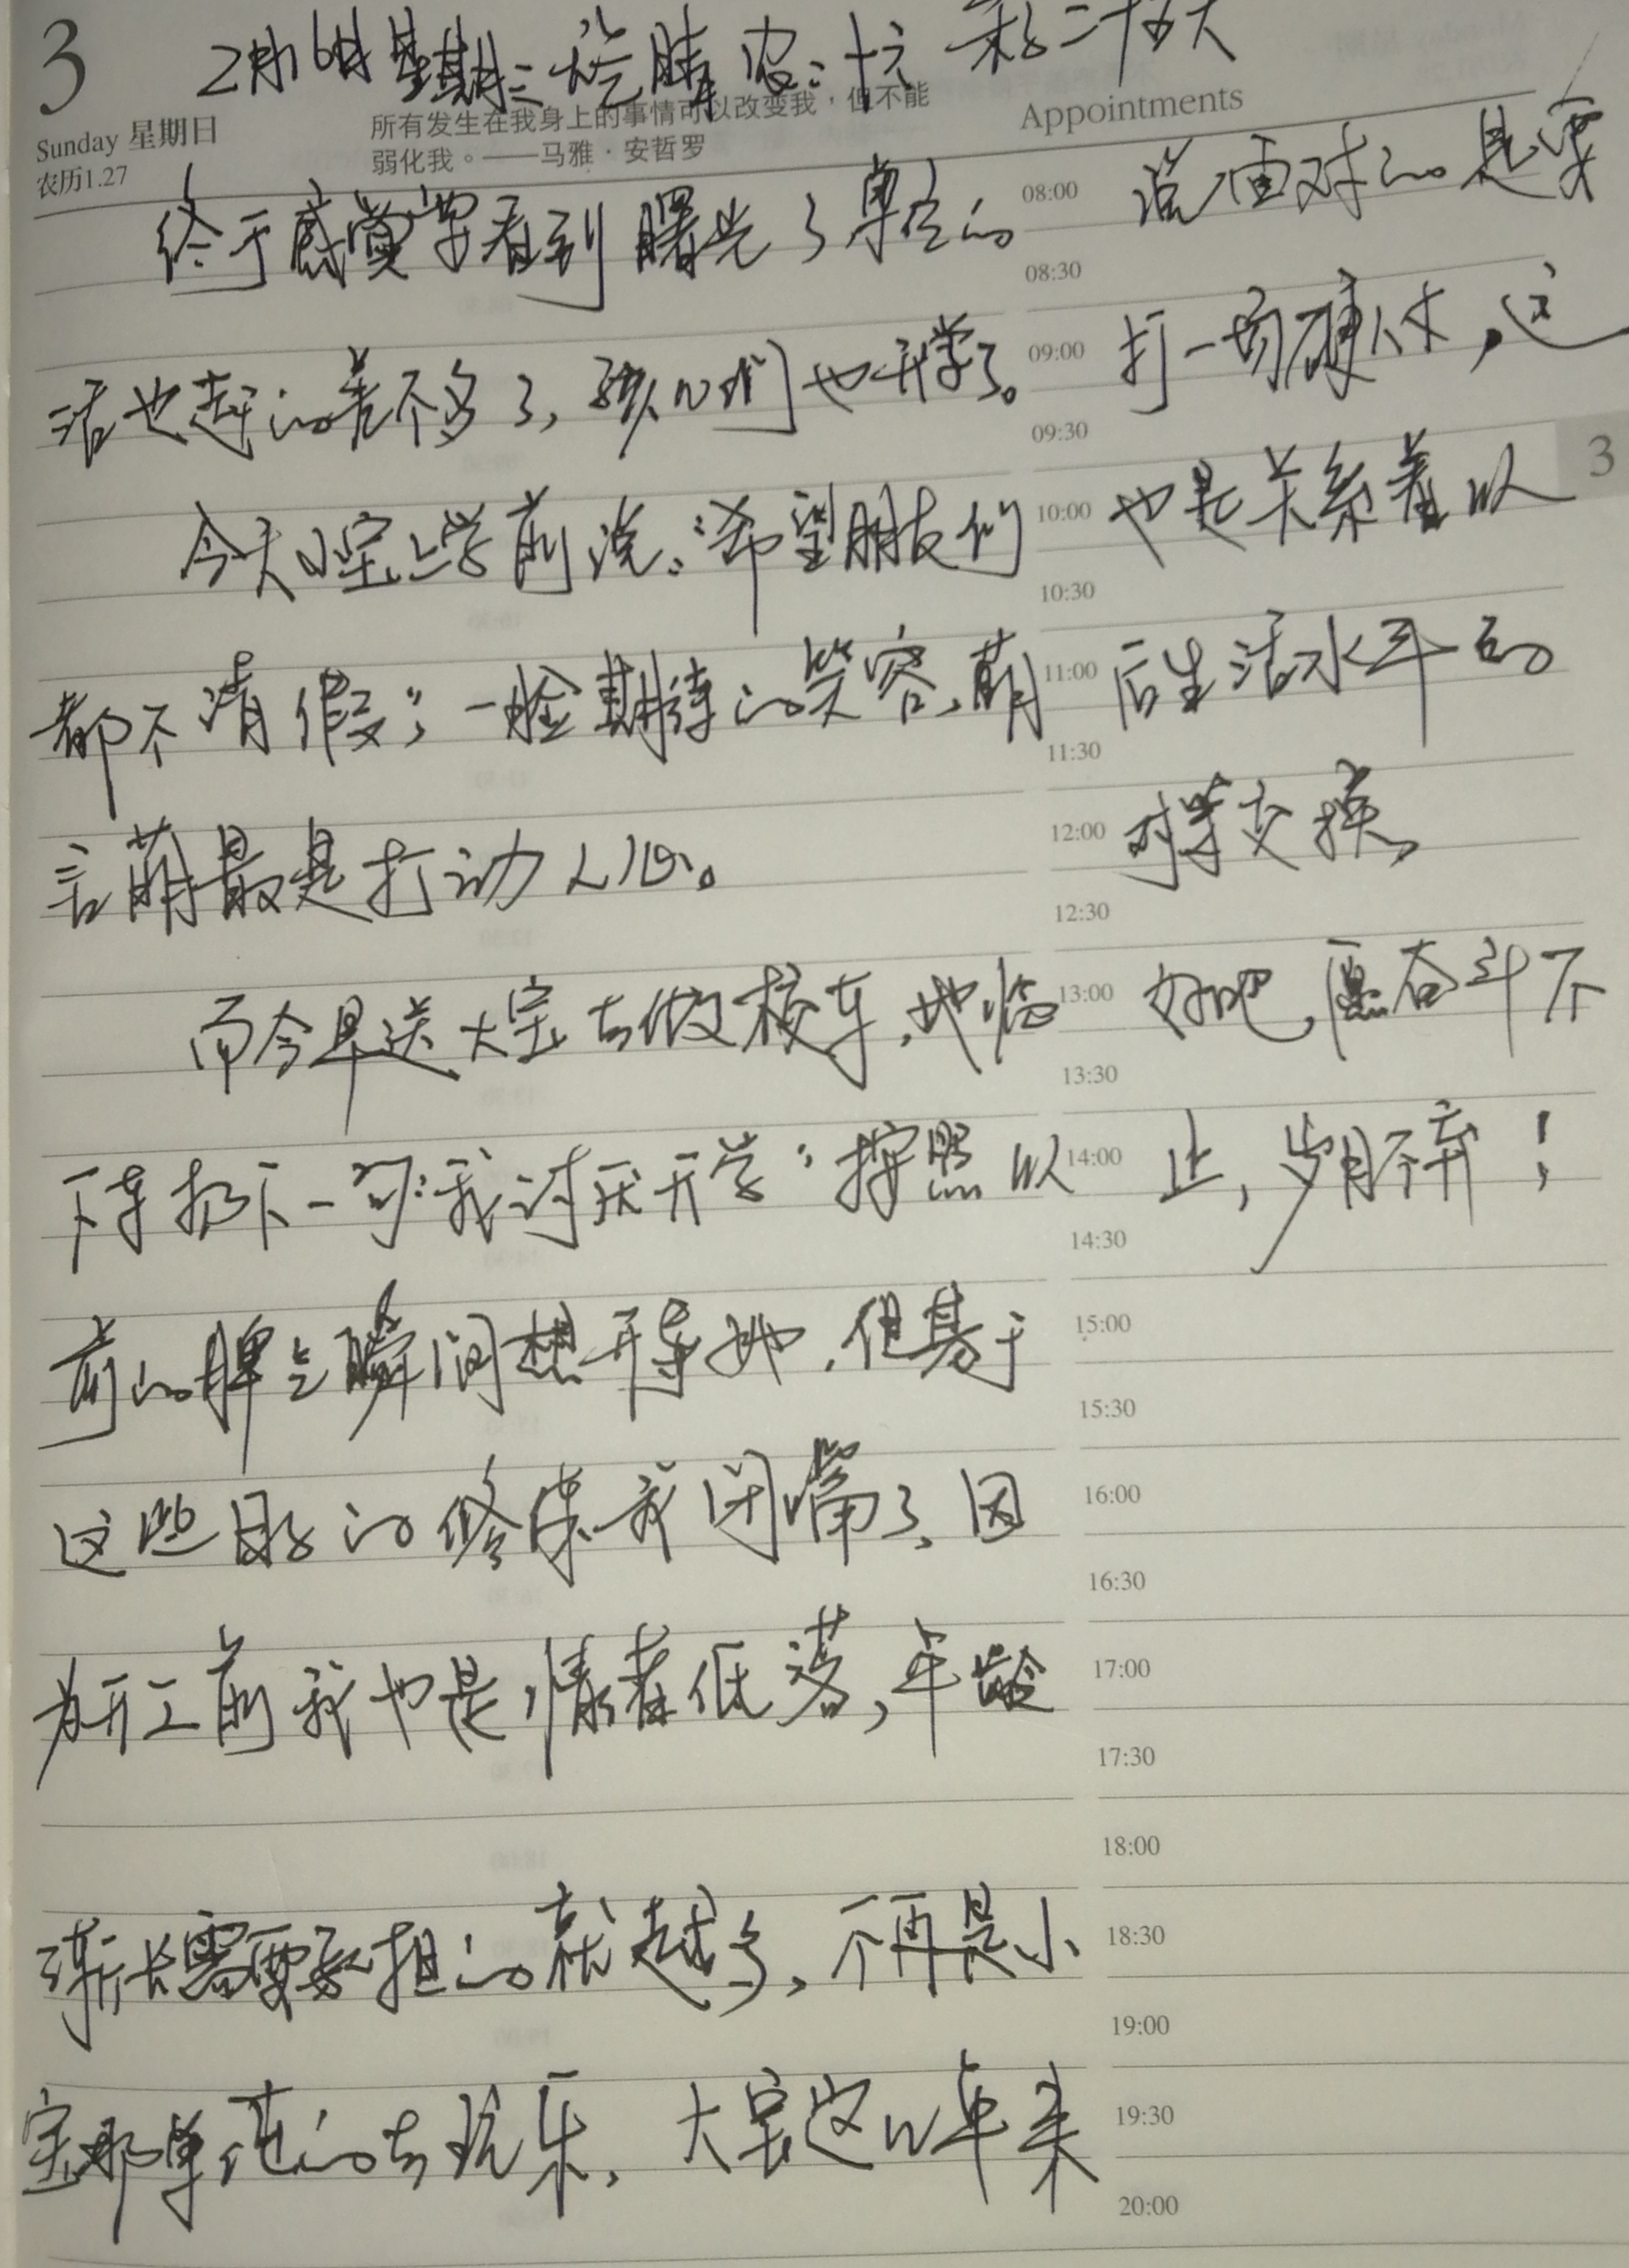 3
2月16日星期三 晴 农:十六 第二十五天
Sunday 星期日
农历1.27
所有发生在我身上的事情可以改变我，但不能
弱化我。——马雅·安哲罗
Appointments
终于感觉看到曙光了, 单位的
活也赶的差不多了, 孩儿们也开学了。
今天小宝上学前说:“希望朋友们
都不请假”, 一脸期待的笑容, 萌
言萌最是打动人心。
而今早送大宝去做校车, 她临
下车扔下一句:“我讨厌开学”按照以
前的脾气瞬间想开导她, 但基于
这些日子的修炼我闭嘴了, 因
为开工前我也是情绪低落, 年龄
渐长需要承担的就越多, 不再是小
宝那单纯的去玩乐, 大宝这几年来
说面对的是要
打一场硬仗, 这
也是关系着以
后生活水平的
对等交换。
好吧, 愿奋斗不
止, 岁月不弃!
08:00
08:30
09:00
09:30
10:00
10:30
11:00
11:30
12:00
12:30
13:00
13:30
14:00
14:30
15:00
15:30
16:00
16:30
17:00
17:30
18:00
18:30
19:00
19:30
20:00
3